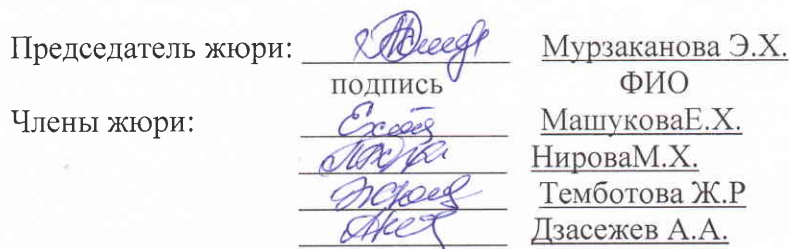 Председатель жюри: Мурзаканова Э.Х.
подпись ФИО
Члены жюри: МашуковаЕ.Х.
НироваМ.Х.
Темботова Ж.Р
Дзасежев А.А.